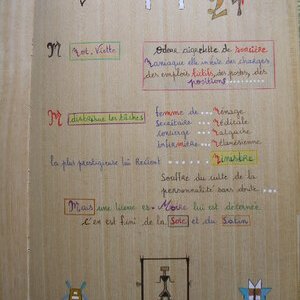 M Mot, Viette
Odeur aigrelette de sorcière
Maniaque elle invente des charges
des emplois futils, des postes, des
positions
M distribue les tâches
femme de ... Ménage
Secrétaire ... Médicale
concierge ... Malgache
infirmière ... Mélanésienne
la plus prestigieuse lui Revient ...... Ministre
Souffre du culte de la
personnalité sans doute...
Mais une licence es-Moire lui est décernée
c'en est fini de la Soie et du Satin